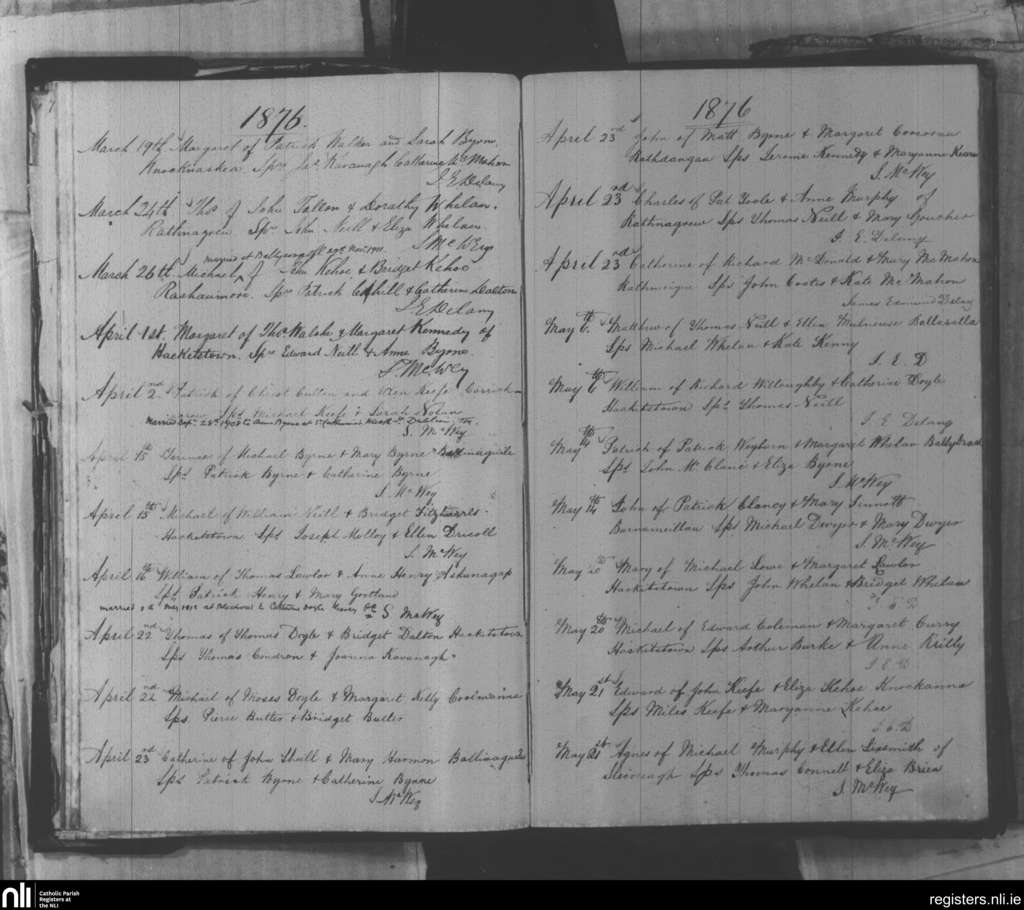 1876.
March 19th Margaret of Patrick Walker and Sarah Byrne
Knocknaskea. Sprs Jas. Kavanagh Catherine McMahon
J E Delany
March 24th Thos of John Fallon & Dorathy Whelan.
Rathnagrew. Sprs John Neill & Eliza Whelan
J McWey
married at Ballymurphy 29th Novr 1911.
March 26th Michael of John Kehoe & Bridget Kehoe
Rashaunmore. Sprs Patrick Cahill & Catherine Dalton
J E Delany
April 1st. Margaret of Thos Walshe & Margaret Kennedy of
Hacketstown. Sprs Edward Neill & Anne Byrne.
J McWey
April 2nd Patrick of Cullen and Ellen Keefe Carrick-
Sps Michael Keefe & Sarah Nolan
Married Sept. 28th 1908 to Anne Byrne at St Catherine's Meath St Dublin
J. McWey
April 15 Terence of Michael Byrne & Mary Byrne Ballinaguile
Sps. Patrick Byrne & Catherine Byrne
J McWey
April 15th Michael of William Neill & Bridget Fitzharris.
Hacketstown Sps Joseph Molloy & Ellen Driscoll
J. McWey
April 16th William of Thomas Lawlor & Anne Henry Askanagap
Sps. Patrick Henry & Mary Gortland
married May 1912 at to Doyle
J McWey
April 22nd Thomas of Thomas Doyle & Bridget Dalton Hacketstown
Sps Thomas Condron & Joanna Kavanagh.
April 22nd Michael of Moses Doyle & Margaret Kelly Coolmanna
Sps. Pierce Butler & Bridget Butler
April 23rd Catherine of John Shall & Mary Harmon Ballinaguile
Sps Patrick Byrne & Catherine Byrne
J. McWey
1876
April 23rd John of Matt Byrne & Margaret Corcoran
Rathdangan Sps Jerome Kennedy & Maryanne Kearns
J. McWey
April 23rd Charles of Pat Toole & Anne Murphy of
Rathnagrew Sps Thomas Neill & Mary Goucher
J. E. Delany
April 23rd Catherine of Richard McDonald & Mary McMahon
Rathmeigue Sps John Coates & Kate McMahon
James Edmund Delany
May 6th Matthew of Thomas Neill & Ellen Mulneuse Ballasalla
Sps Michael Whelan & Kate Kenny
J. E. D
May 6th William of Richard Willoughby & Catherine Doyle
Hacketstown Sps. Thomas Neill
J E Delany
May 14th Patrick of Patrick Weyburn & Margaret Whelan
Sps John McClane & Eliza Byrne
J McWey
May 14th John of Patrick Clancy & Mary Sinnott
Barnameelian Sps Michael Dwyer & Mary Dwyer
J. McWey
May 20th Mary of Michael Lowe & Margaret Lawlor
Hacketstown Sps John Whelan & Bridget Whelan
J. E D
May 20th Michael of Edward Coleman & Margaret Curry
Hacketstown Sps Arthur Burke & Anne Reilly
J E D
May 21st Edward of John Keefe & Eliza Kehoe Knockanna
Sps Miles Keefe & Maryanne Kehoe
J. E. D
May 21st Agnes of Michael Murphy & Ellen Sixsmith of
Slievereagh Sps Thomas Connell & Eliza Brien
J. McWey
nli
Catholic Parish
Registers at
the NLI
registers.nli.ie